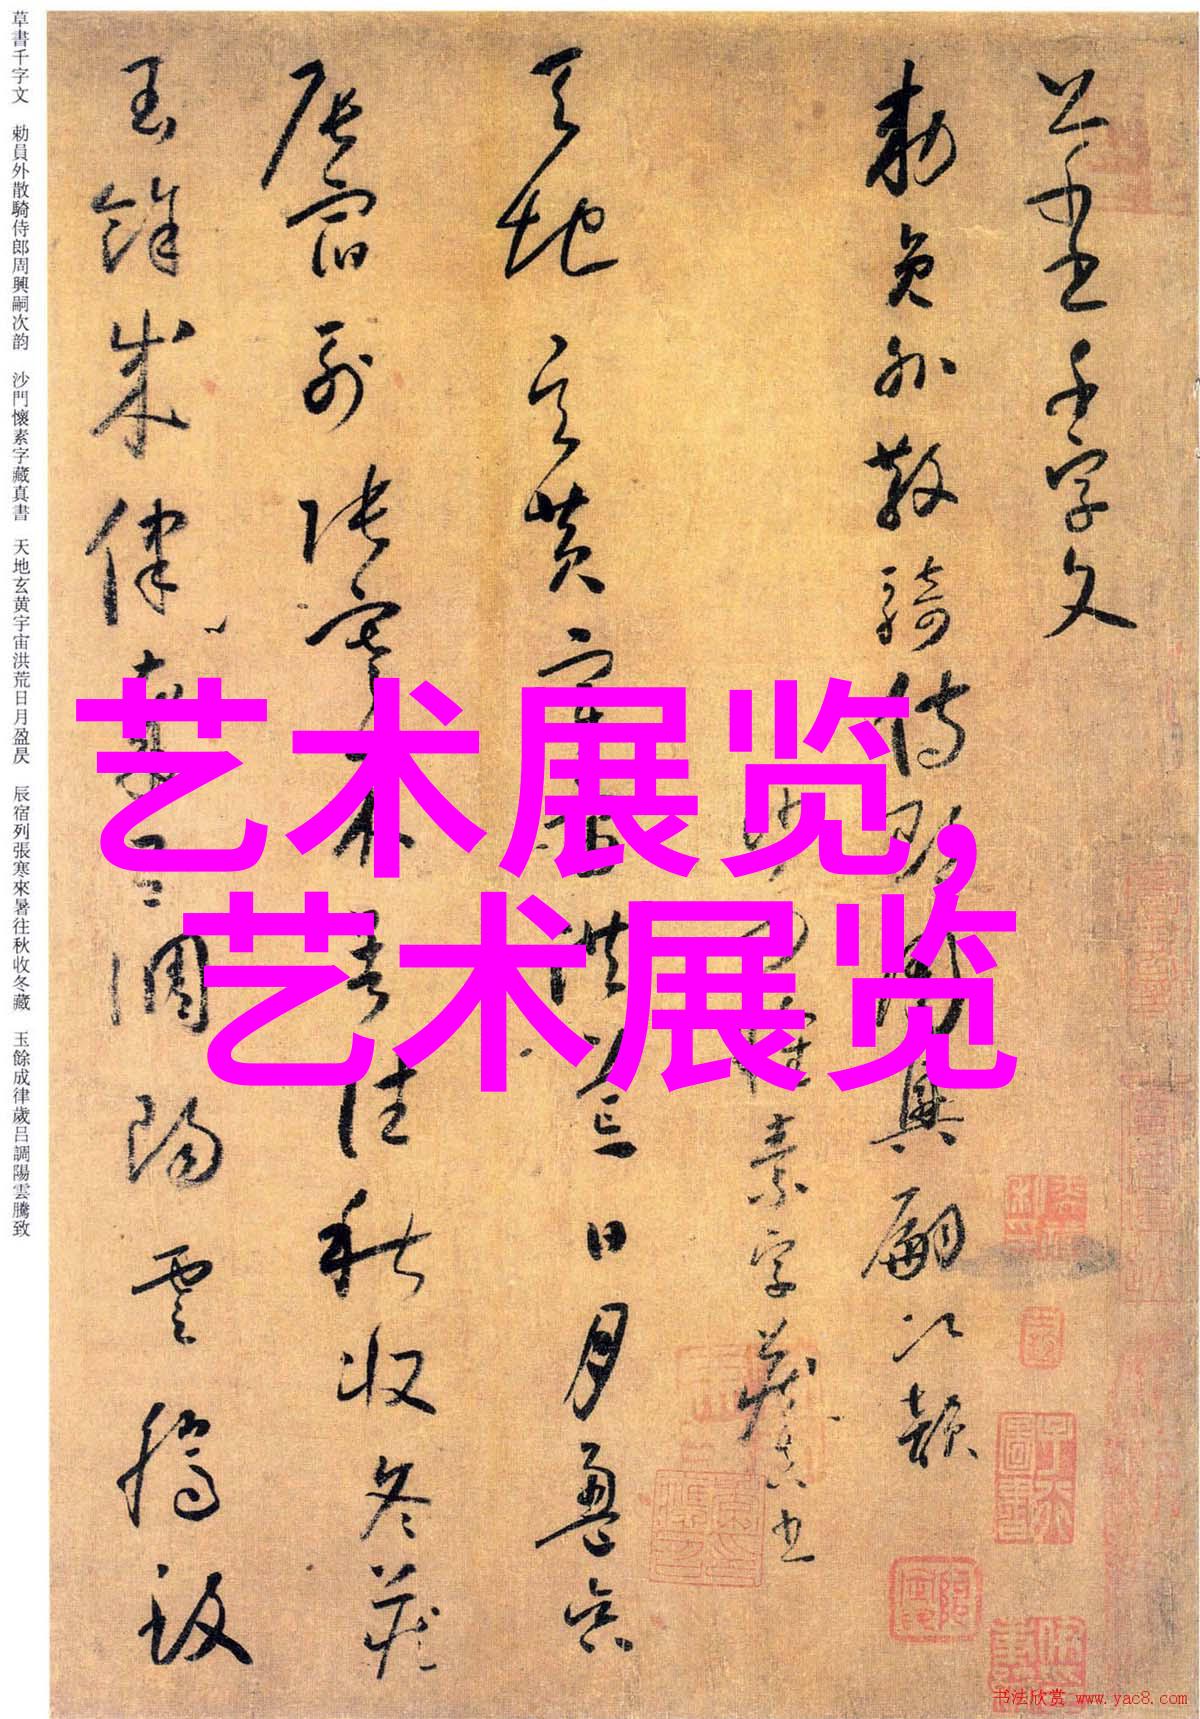 草書千字文 勅員外散騎侍郎周興嗣次韵 沙門懷素字藏真書 天地玄黄宇宙洪荒日月盈昃 辰宿列張寒來暑往秋收冬藏 玉餘成律歲吕調陽雲騰致
千字文
勅員外散騎侍郎周興嗣次韻
沙門懷素字藏真書
天地玄黄宇宙洪荒日月盈昃
辰宿列張寒來暑往秋收冬藏
玉餘成律歲吕調陽雲騰致
艺术展览,
艺术展览
书法欣赏 www.yac8.com